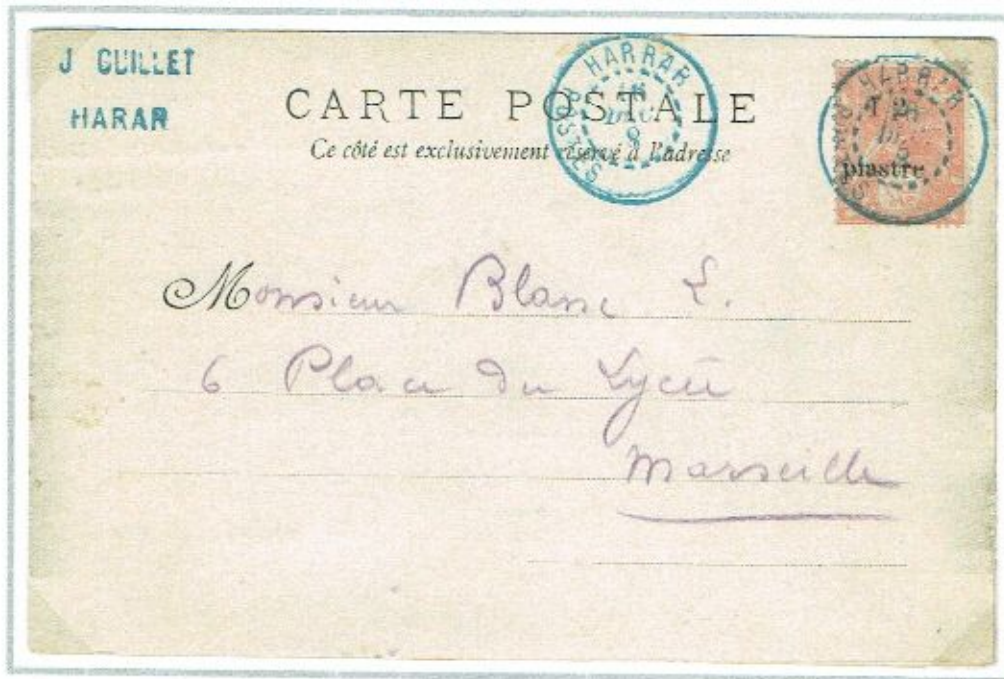 J GUILLET
HARAR
CARTE POSTALE
Ce côté est exclusivement réservé à l'adresse
HARRAR
HARRAR
piastre
Monsieur Blanc L.
6 Place du Lycée
Marseille